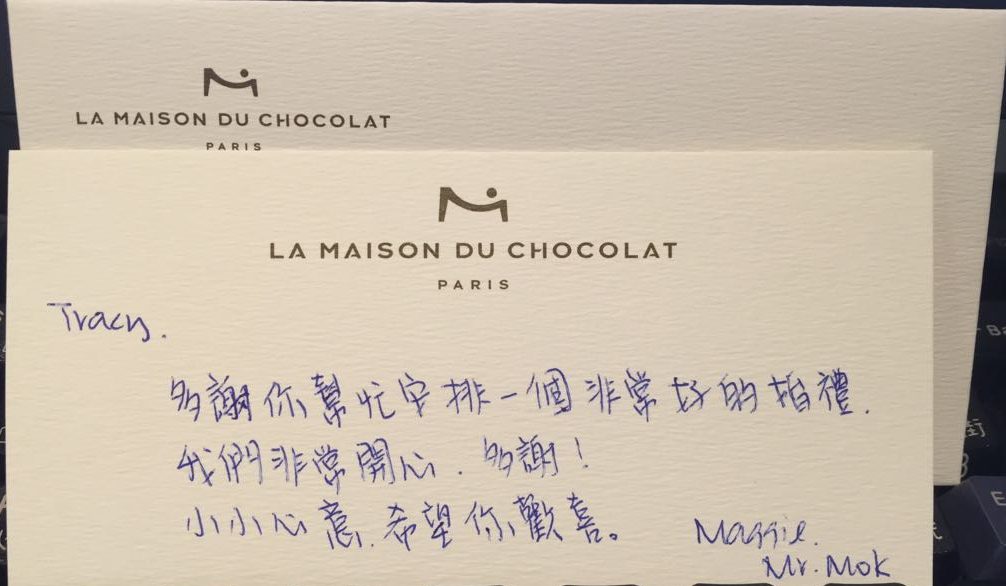 LA MAISON DU CHOCOLAT
PARIS
LA MAISON DU CHOCOLAT
PARIS
Tracy.
多謝你幫忙安排一個非常好的婚禮.
我們非常開心. 多謝!
小小心意. 希望你歡喜。
Maggie.
Mr. Mok